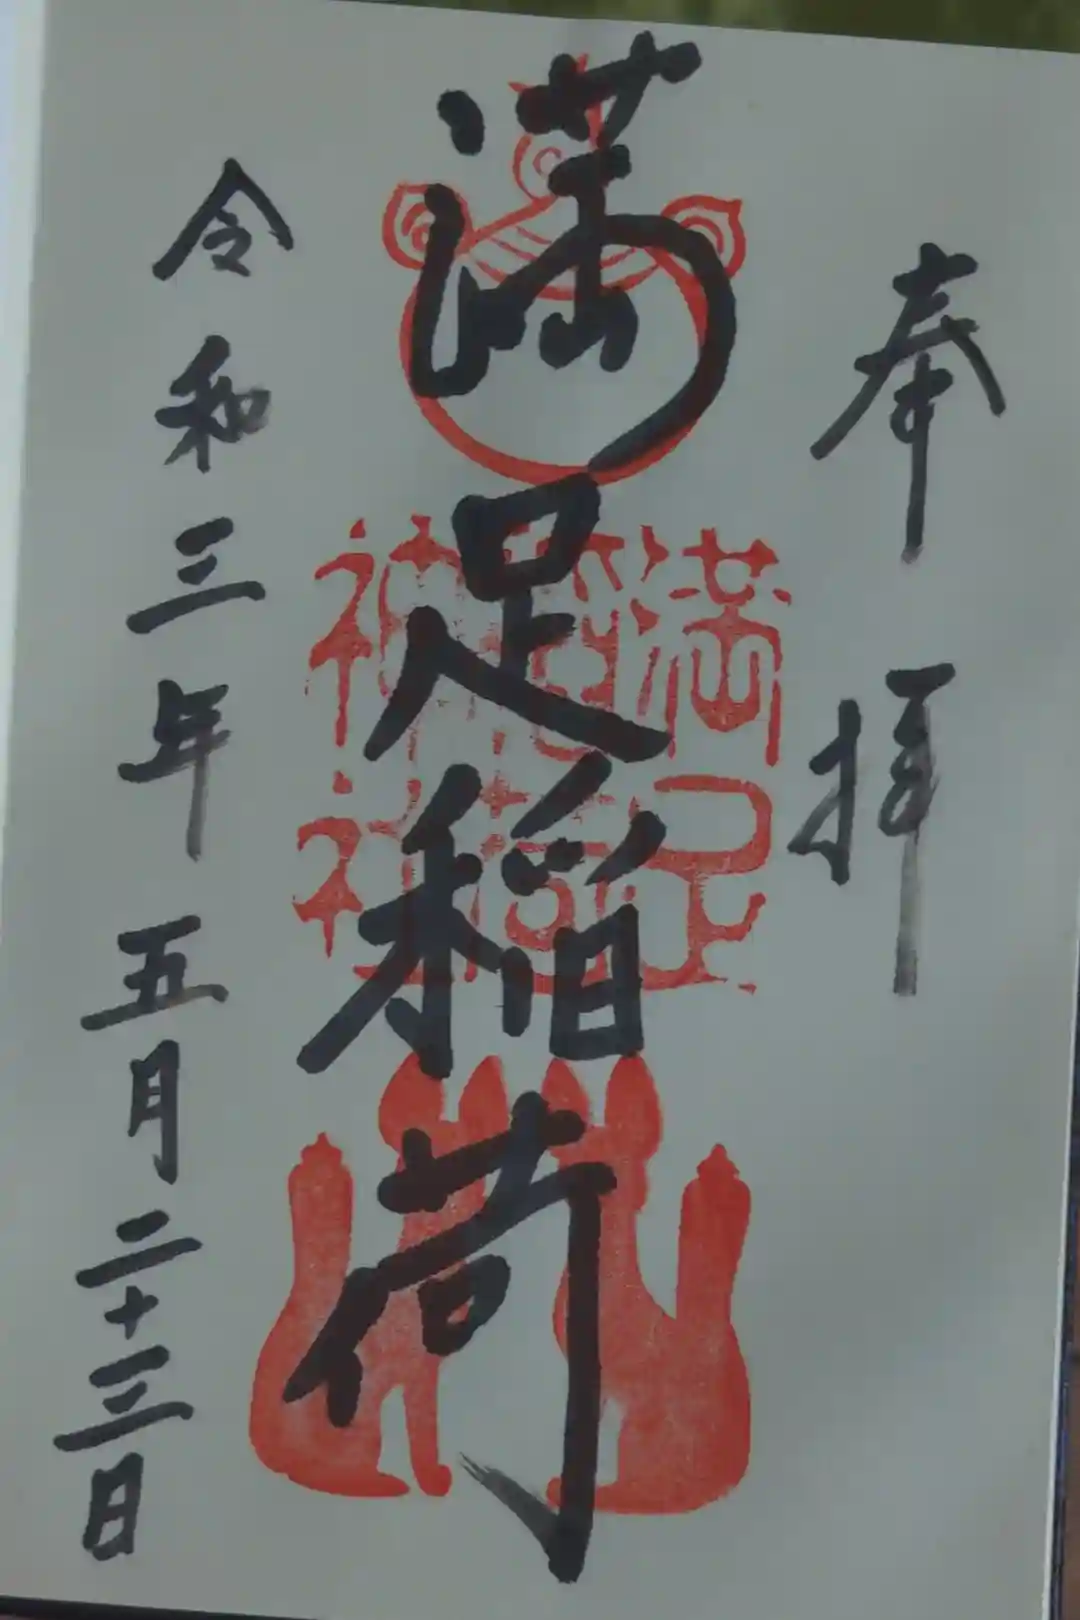 奉拝
満足稲荷
令和三年五月二十三日
満足
稲荷
神社